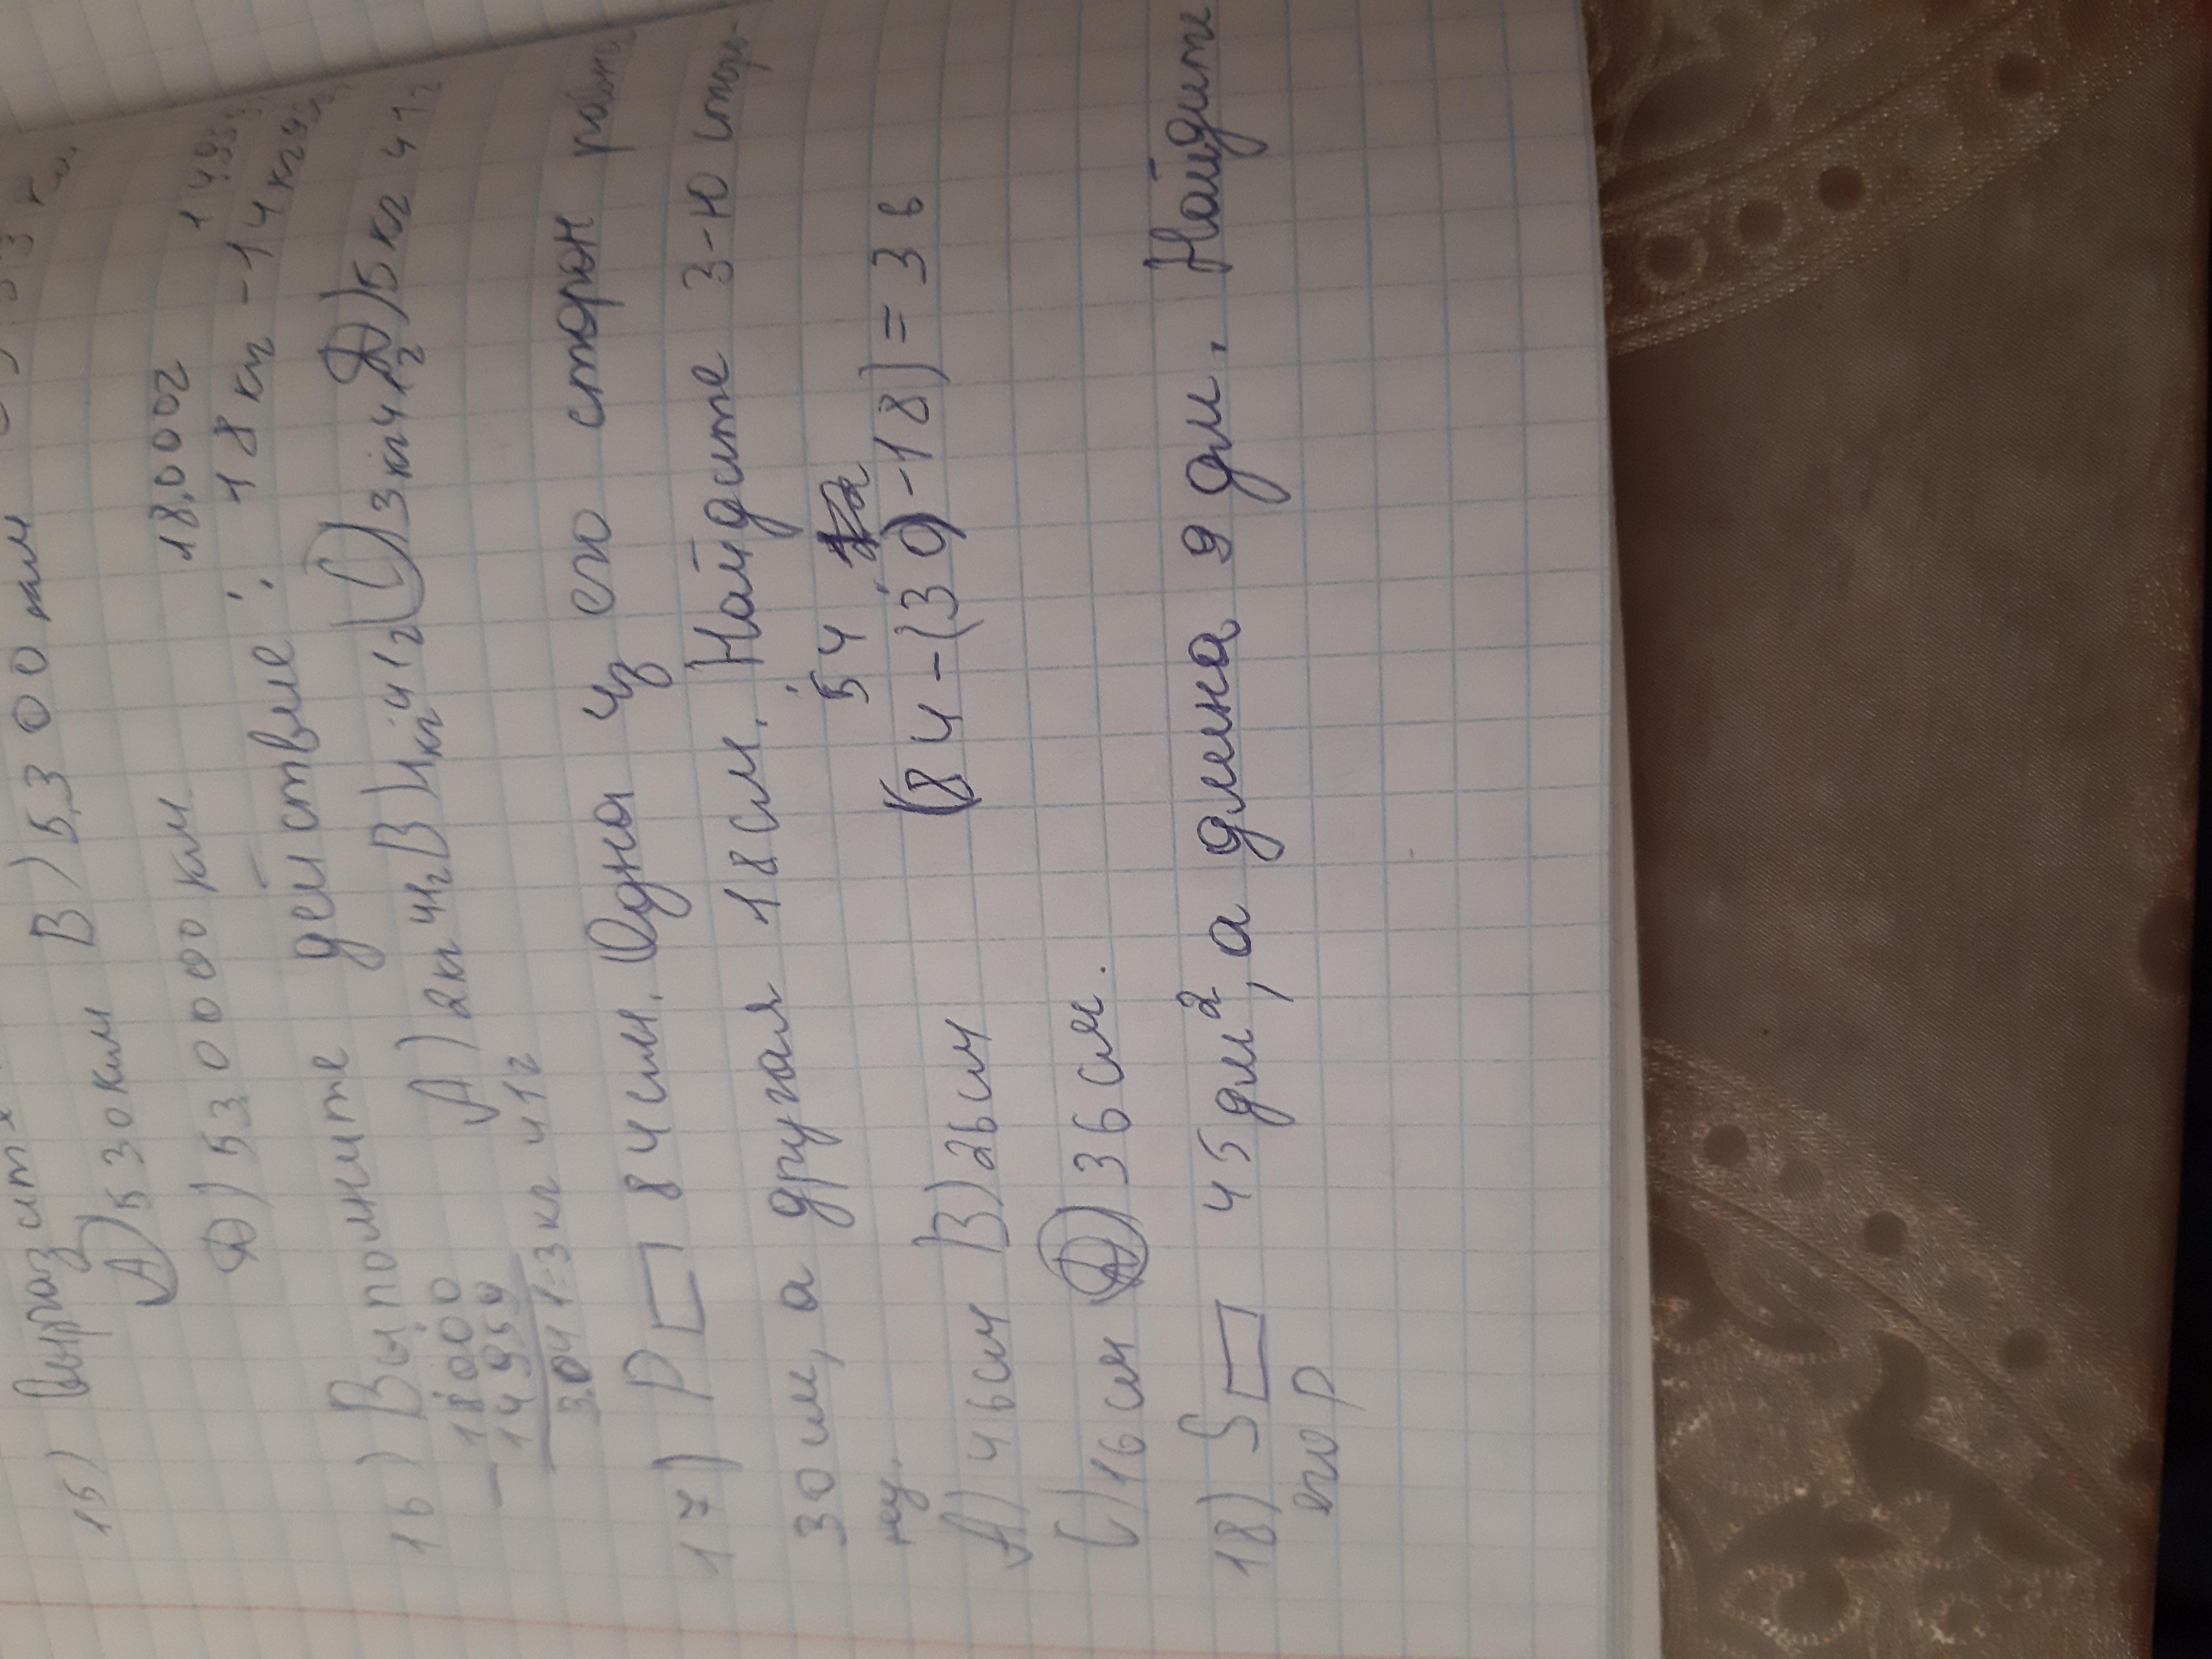 15) Выразите
А) 530км В) 5300км
D) 530000км.
18.000г
16) Выполните действие: 18кг - 14кг
18000
14959
3.041=3кг 41г
А) 2кг 41г В) 4кг 41г С) 3кг 41г D) 5кг 41г
17) P▭ 84см. Одна из его сторон равна
30см, а другая 18см. Найдите 3-ю сторо-
ну.
54
(84-(30)-18)=36
А) 46см В) 26см
С) 16см D) 36см.
18) S▭ 45дм², а длина 9дм. Найдите
его P